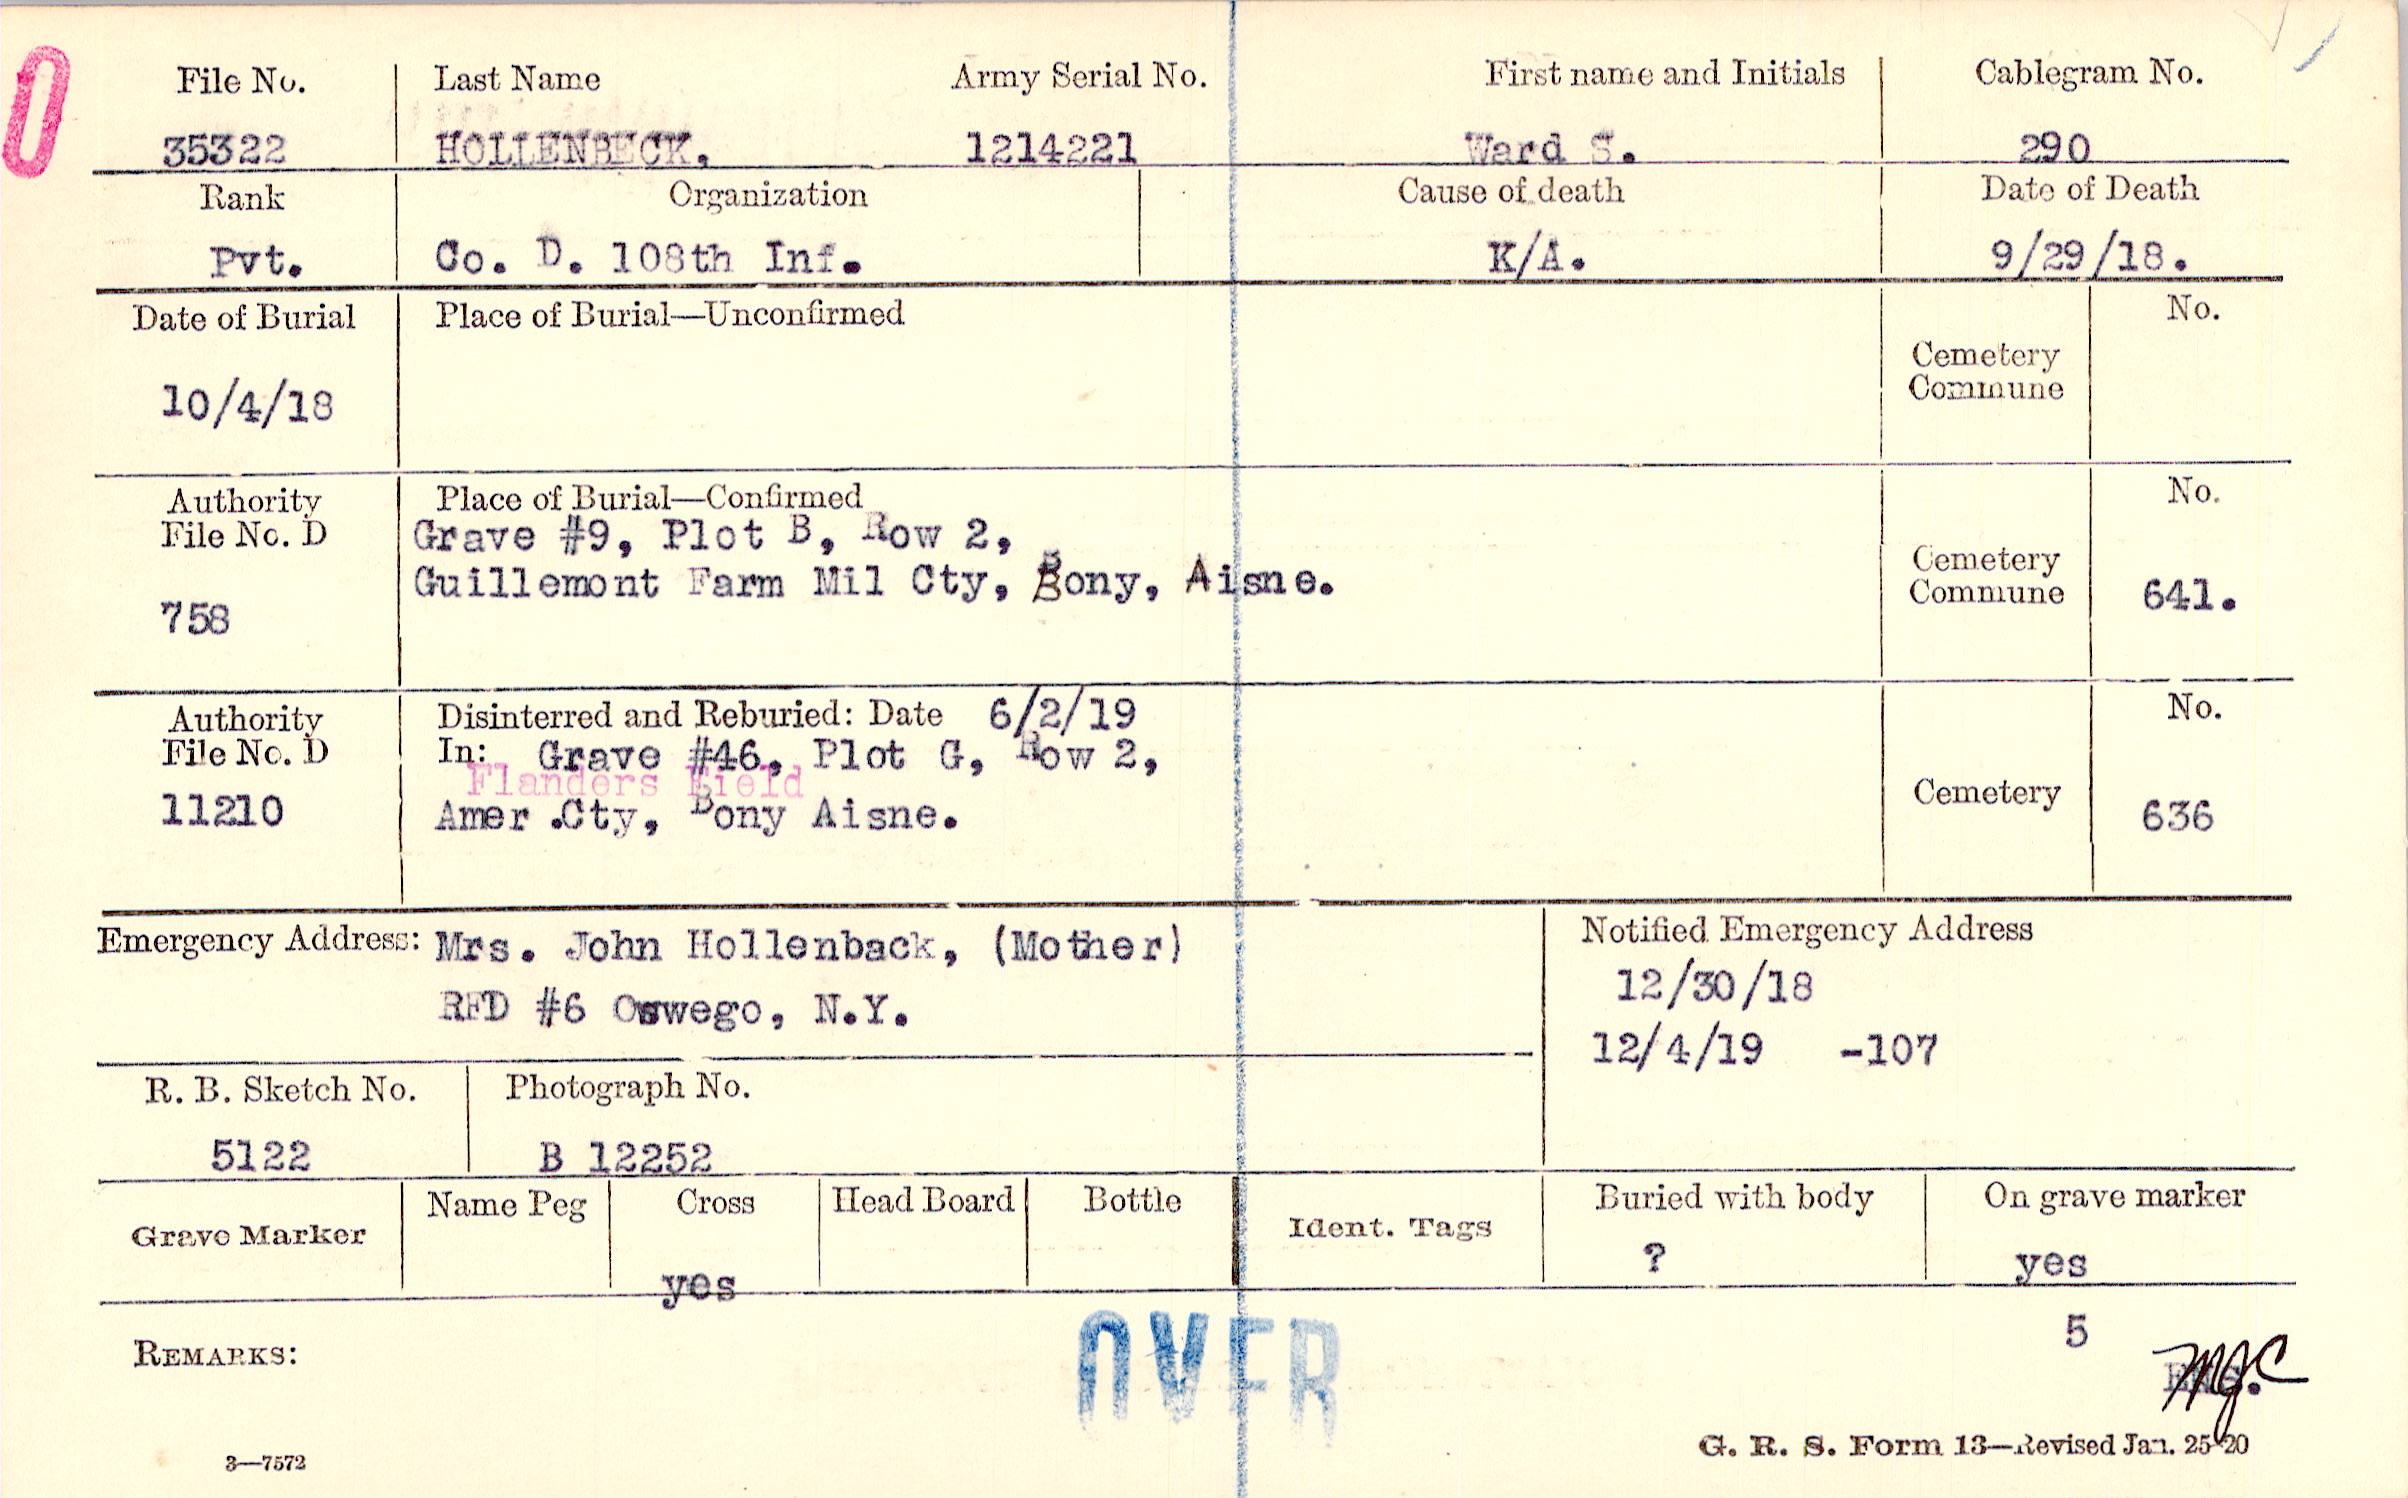 0
File No. Last Name Army Serial No. First name and Initials Cablegram No.
35322 HOLLENBECK, 1214221 Ward S. 290
Rank Organization Cause of death Date of Death
Pvt. Co. D. 108th Inf. K/A. 9/29/18.
Date of Burial Place of Burial—Unconfirmed No.
Cemetery
Commune
10/4/18
Authority Place of Burial—Confirmed No.
File No. D Grave #9, Plot B, Row 2,
Guillemont Farm Mil Cty, Bony, Aisne. Cemetery
Commune 641.
758
Authority Disinterred and Reburied: Date 6/2/19 No.
File No. D In: Grave #46, Plot G, Row 2,
Flanders Field
11210 Amer .Cty, Bony Aisne. Cemetery 636
Emergency Address: Mrs. John Hollenback, (Mother) Notified Emergency Address
12/30/18
RFD #6 Oswego, N.Y.
12/4/19 -107
R. B. Sketch No. Photograph No.
5122 B 12252
Grave Marker Name Peg Cross Head Board Bottle Ident. Tags Buried with body On grave marker
yes ? yes
OVER
5
REMARKS:
MJC
3—7572
G. R. S. Form 13—Revised Jan. 25-20